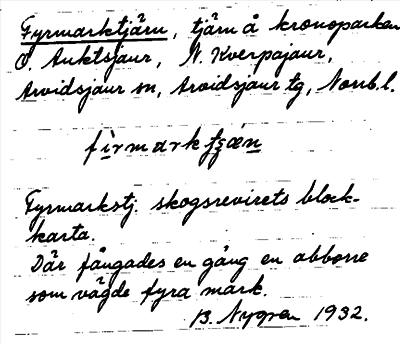 Fyrmarktjärn, tjärn å kronoparken
Ö. Auktsjaur, N. Kverpajaur,
Arvidsjaur sn, Arvidsjaur tg, Norrb.l.
Fyrmarkstj. skogsrevirets block-
karta.
Där fångades en gång en abborre
som vägde fyra mark.
B. Nygren 1932.